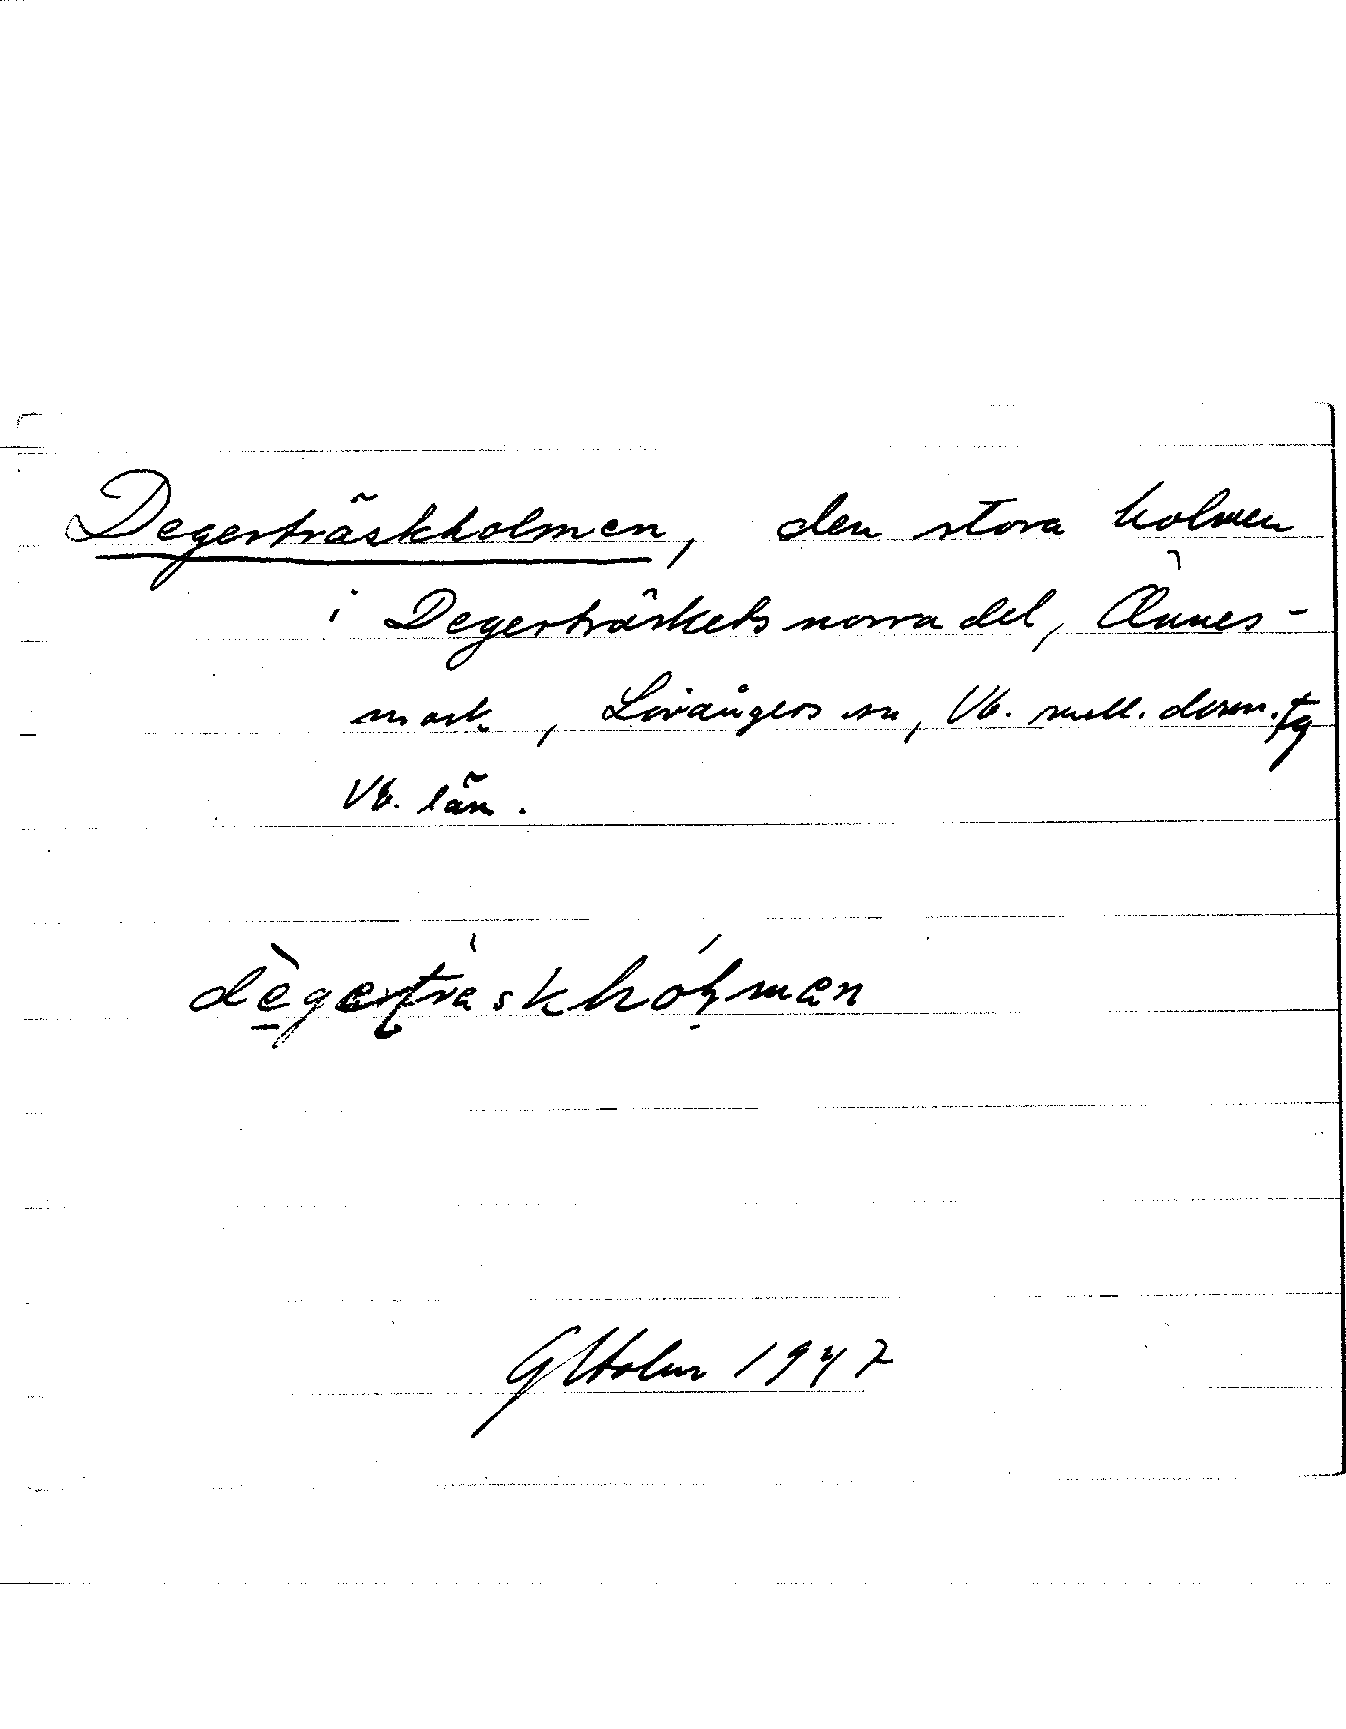 Degerträskholmen, den stora holmen
i Degerträskets norra del, Ånnes-
mark, Lövångers sn, Vb. mell. doms. tg
Vb. län.
dègertràskhólmen
GHolm 1947